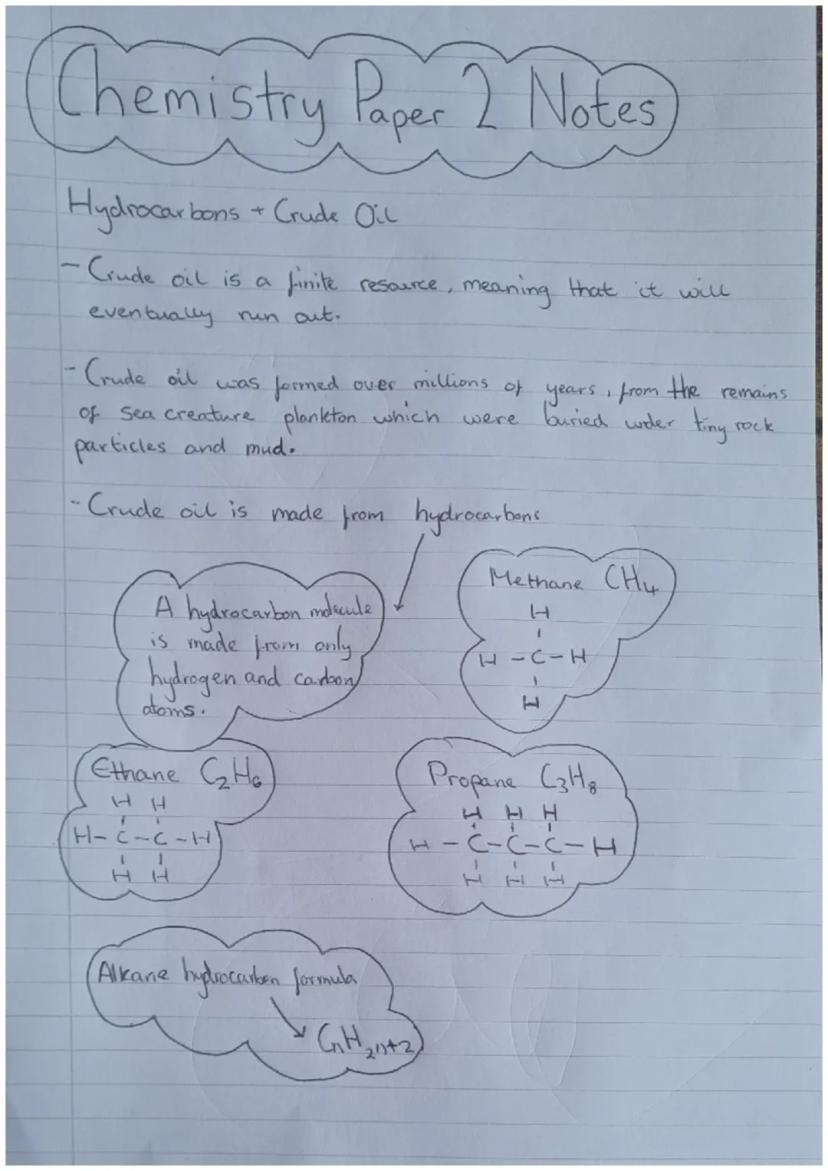 Chemistry Paper 2 Notes
Hydrocarbons + Crude Oil
- Crude oil is a finite resource, meaning that it will
eventually run out.
- Crude oil was formed over millions of years, from the remains
of sea creature plankton which were buried under tiny rock
particles and mud.
- Crude oil is made from hydrocarbons
A hydrocarbon molecule
is made from only
hydrogen and carbon
atoms.
Methane CH₄
H
H - C - H
H
Ethane C₂H₆
H H
H - C - C - H
H H
Propane C₃H₈
H H H
H - C - C - C - H
H H H
Alkane hydrocarbon formula
CnH2n+2